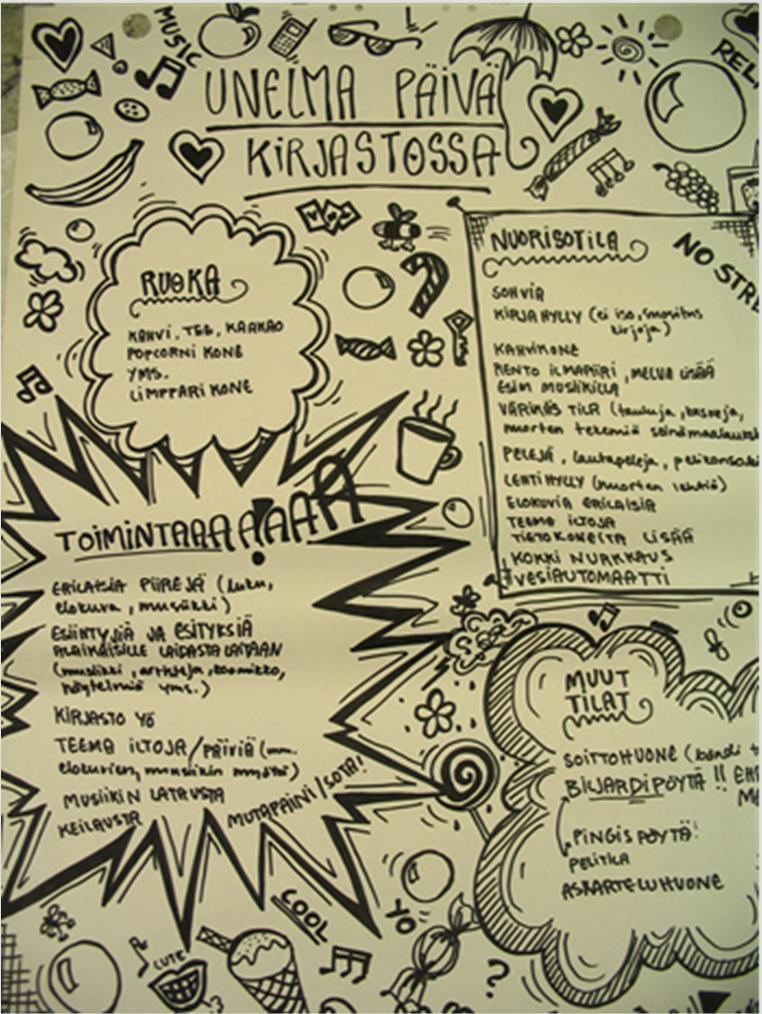 MUSIC
UNELMA PÄIVÄ
KIRJASTOSSA
RUOKA
KAHVI, TEE, KAAKAO
POPCORNI KONE
YMS.
LIMPPARI KONE
NUORISOTILA
NO STRE
SOHVIA
KIRJAHYLLY (ei iso, suositus
kirjoja)
KAHVIKONE
RENTO ILMAPIIRI, MELUA LISÄÄ
ESIM MUSIIKILLA
VÄRIKÄS TILA (tauluja, kasveja,
nuorten tekemiä seinämaalauksi
PELEJÄ, lautapelejä, pelikonsoli
LEHTIHYLLY (nuorten lehtiä)
ELOKUVIA ERILAISIA
TEEMA ILTOJA
TIETOKONEITA LISÄÄ
KOKKI NURKKAUS
VESIAUTOMAATTI
TOIMINTAAAAAAA!
ERILAISIA PIIREJÄ (luku,
elokuva, musiikki)
ESIINTYJIÄ JA ESITYKSIÄ
ALAIKÄISILLE LAIDASTA LAITAAN
(musiikki, artisteja, koomikko,
näytelmiä yms.)
KIRJASTO YÖ
TEEMA ILTOJA/PÄIVIÄ (mm.
elokuvien, musiikin myötä)
MUSIIKIN LATAUSTA
KEILAUSTA
MUTAPAINI/SOTA!
MUUT
TILAT
SOITTOHUONE (bändi t
BILJARDIPÖYTÄ!! EH
PINGISPÖYTÄ!
PELITILA
ASKARTELUHUONE
COOL
YO
CUTE
?